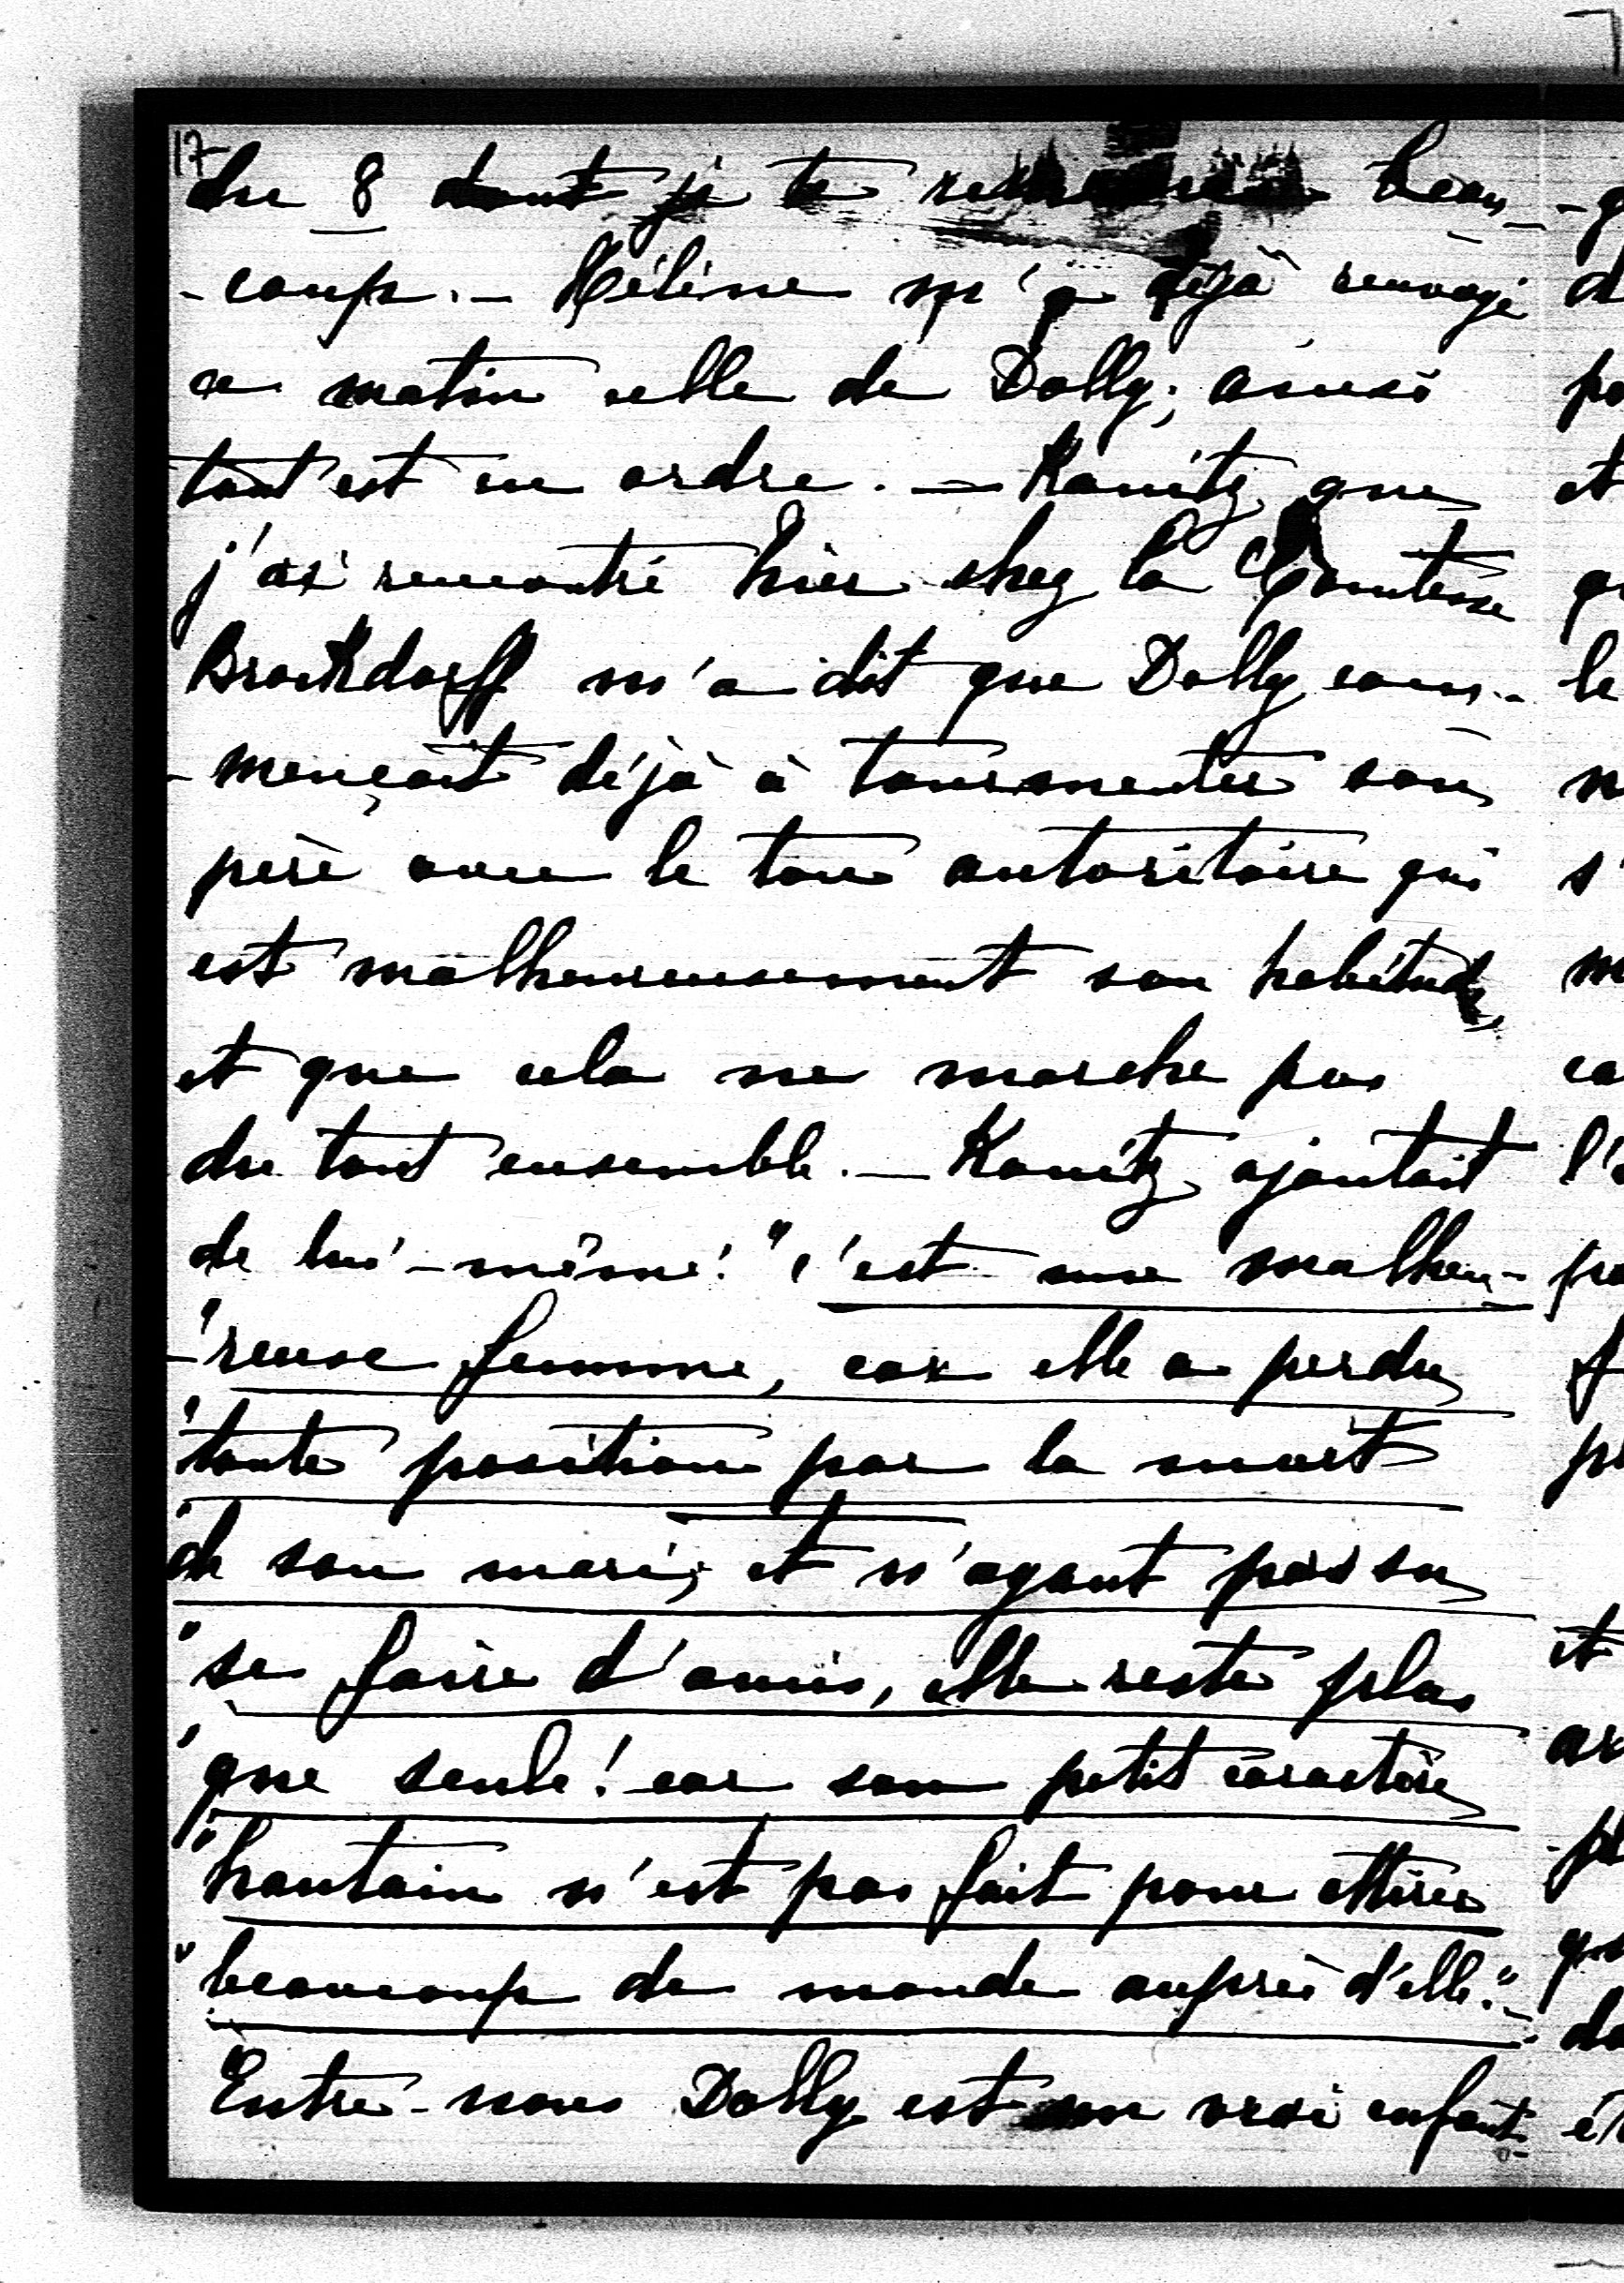 17
du 8 dont je te remercie beau-
-coup. - Hélène m'a déjà renvoyé
ce matin celle de Dolly; ainsi
tout est en ordre. - Kanitz que
j'ai rencontré hier chez la Comtesse
Brockdorff m'a dit que Dolly com-
-mençait déjà à tourmenter son
père avec le ton autoritaire qui
est malheureusement son habitude,
et que cela ne marche pas
du tout ensemble. - Kanitz ajoutait
de lui-même: "c'est une malheu-
-"reuse femme, car elle a perdu
"toute position par la mort
"de son mari; et n'ayant pas su
"se faire d'amis, elle reste plus
"que seule! car son petit caractère
"hautain n'est pas fait pour attirer
"beaucoup de monde auprès d'elle." -
Entre-nous Dolly est un vrai enfant